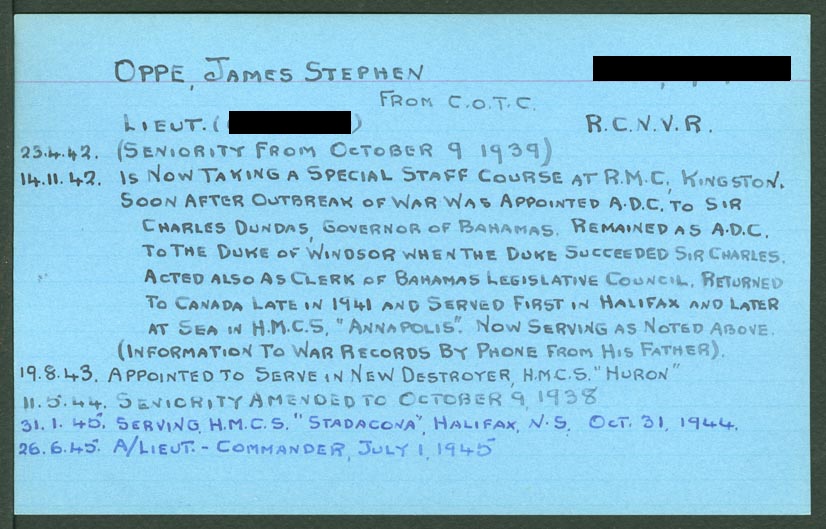 OPPE, JAMES STEPHEN
FROM C.O.T.C.
LIEUT. ( ) R.C.N.V.R.
23.4.42. (SENIORITY FROM OCTOBER 9 1939)
14.11.42. IS NOW TAKING A SPECIAL STAFF COURSE AT R.M.C. KINGSTON.
SOON AFTER OUTBREAK OF WAR WAS APPOINTED A.D.C. TO SIR
CHARLES DUNDAS, GOVERNOR OF BAHAMAS. REMAINED AS A.D.C.
TO THE DUKE OF WINDSOR WHEN THE DUKE SUCCEEDED SIR CHARLES.
ACTED ALSO AS CLERK OF BAHAMAS LEGISLATIVE COUNCIL. RETURNED
TO CANADA LATE IN 1941 AND SERVED FIRST IN HALIFAX AND LATER
AT SEA IN H.M.C.S. "ANNAPOLIS". NOW SERVING AS NOTED ABOVE.
(INFORMATION TO WAR RECORDS BY PHONE FROM HIS FATHER).
19.8.43. APPOINTED TO SERVE IN NEW DESTROYER, H.M.C.S. "HURON"
11.5.44. SENIORITY AMENDED TO OCTOBER 9, 1938
31.1.45. SERVING, H.M.C.S. "STADACONA", HALIFAX, N.S. OCT. 31, 1944.
26.6.45. A/LIEUT.-COMMANDER, JULY 1, 1945